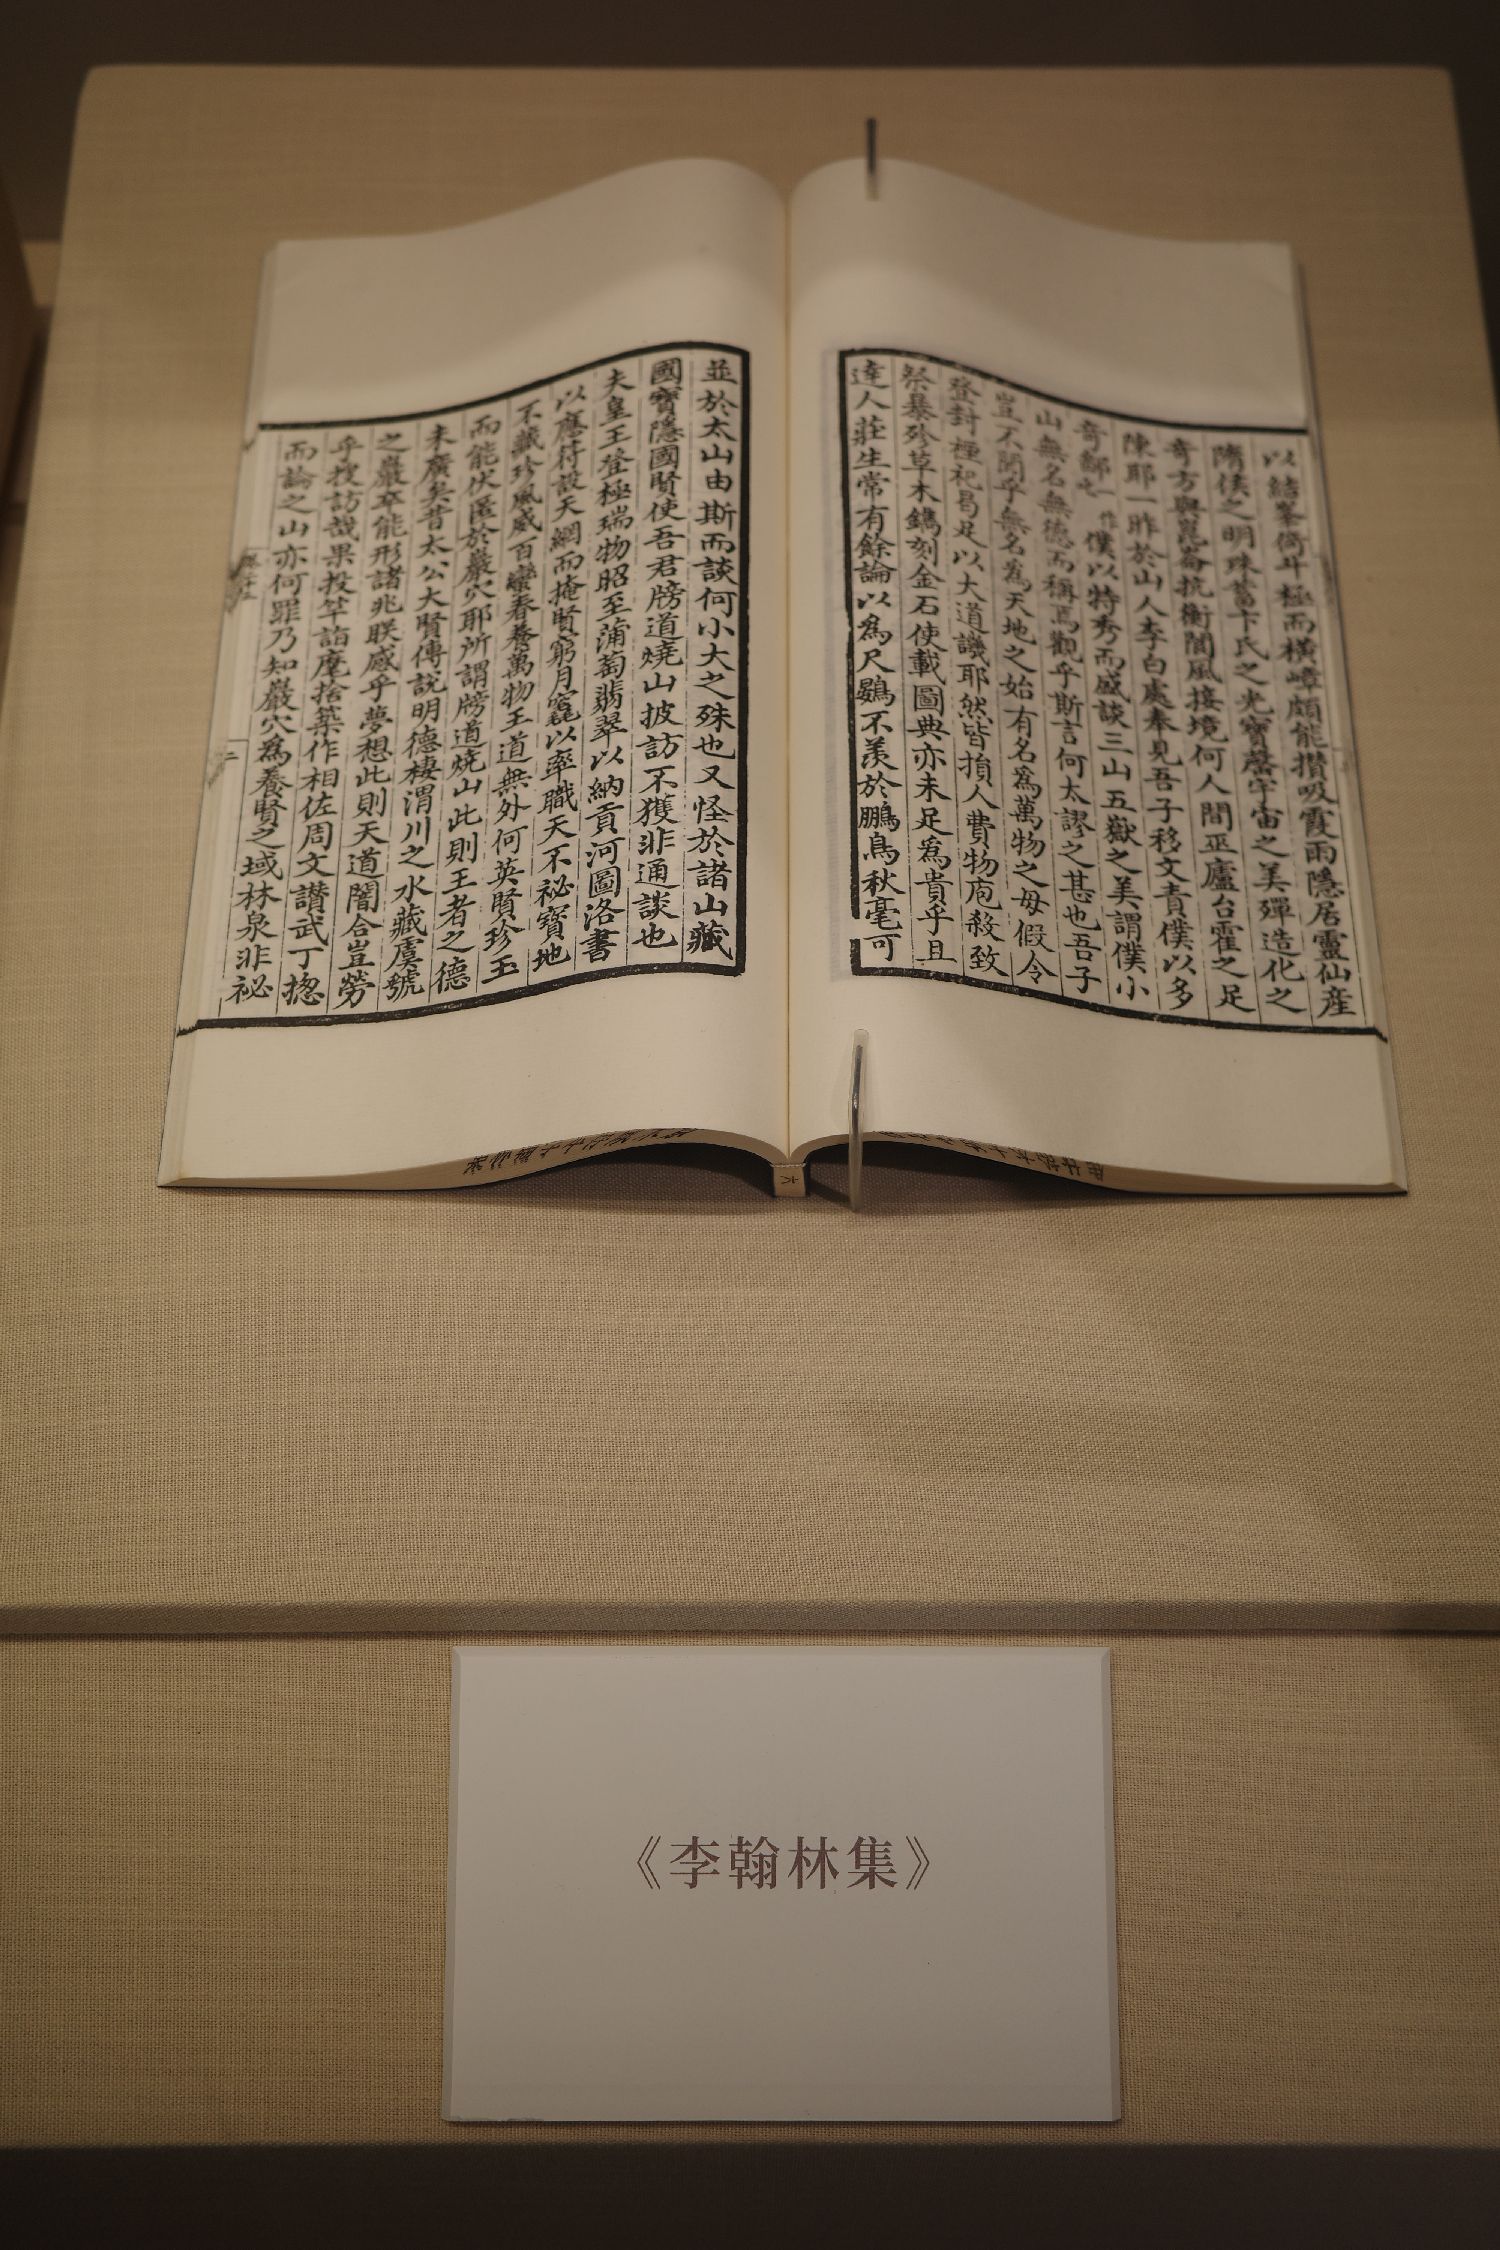 以結峯倚斗極而橫嶂頗能攢吸霞雨隱居靈仙産
隋侯之明珠蓄卞氏之光寶罄宇宙之美殫造化之
奇方與崑崙抗衡閬風接境何人間巫廬台霍之足
陳耶一昨於山人李白處奉見吾子移文責僕以多
奇鄙一作僕以特秀而盛談三山五嶽之美謂僕小
山無名無德而稱焉觀乎斯言何太謬之甚也吾子
豈不聞乎無名爲天地之始有名爲萬物之母假令
登封禋祀曷足以大道譏耶然皆損人費物庖殺致
祭暴殄草木鐫刻金石使載圖典亦未足爲貴乎且
達人莊生常有餘論以爲尺鷃不羨於鵬鳥秋毫可
並於太山由斯而談何小大之殊也又怪於諸山藏
國寶隱國賢使吾君牓道燒山披訪不獲非通談也
夫皇王登極瑞物昭至蒲萄翡翠以納貢河圖洛書
以應符設天網而掩賢窮月竁以率職天不祕寶地
不藏珍風威百蠻春養萬物王道無外何英賢珍玉
而能伏匿於巖穴耶所謂牓道燒山此則王者之德
未廣矣昔太公大賢傅說明德棲渭川之水藏虞虢
之巖卒能形諸兆朕感乎夢想此則天道闇合豈勞
乎搜訪哉果投竿詣麾捨築作相佐周文讃武丁揔
而論之山亦何罪乃知巖穴爲養賢之域林泉非祕
《李翰林集》